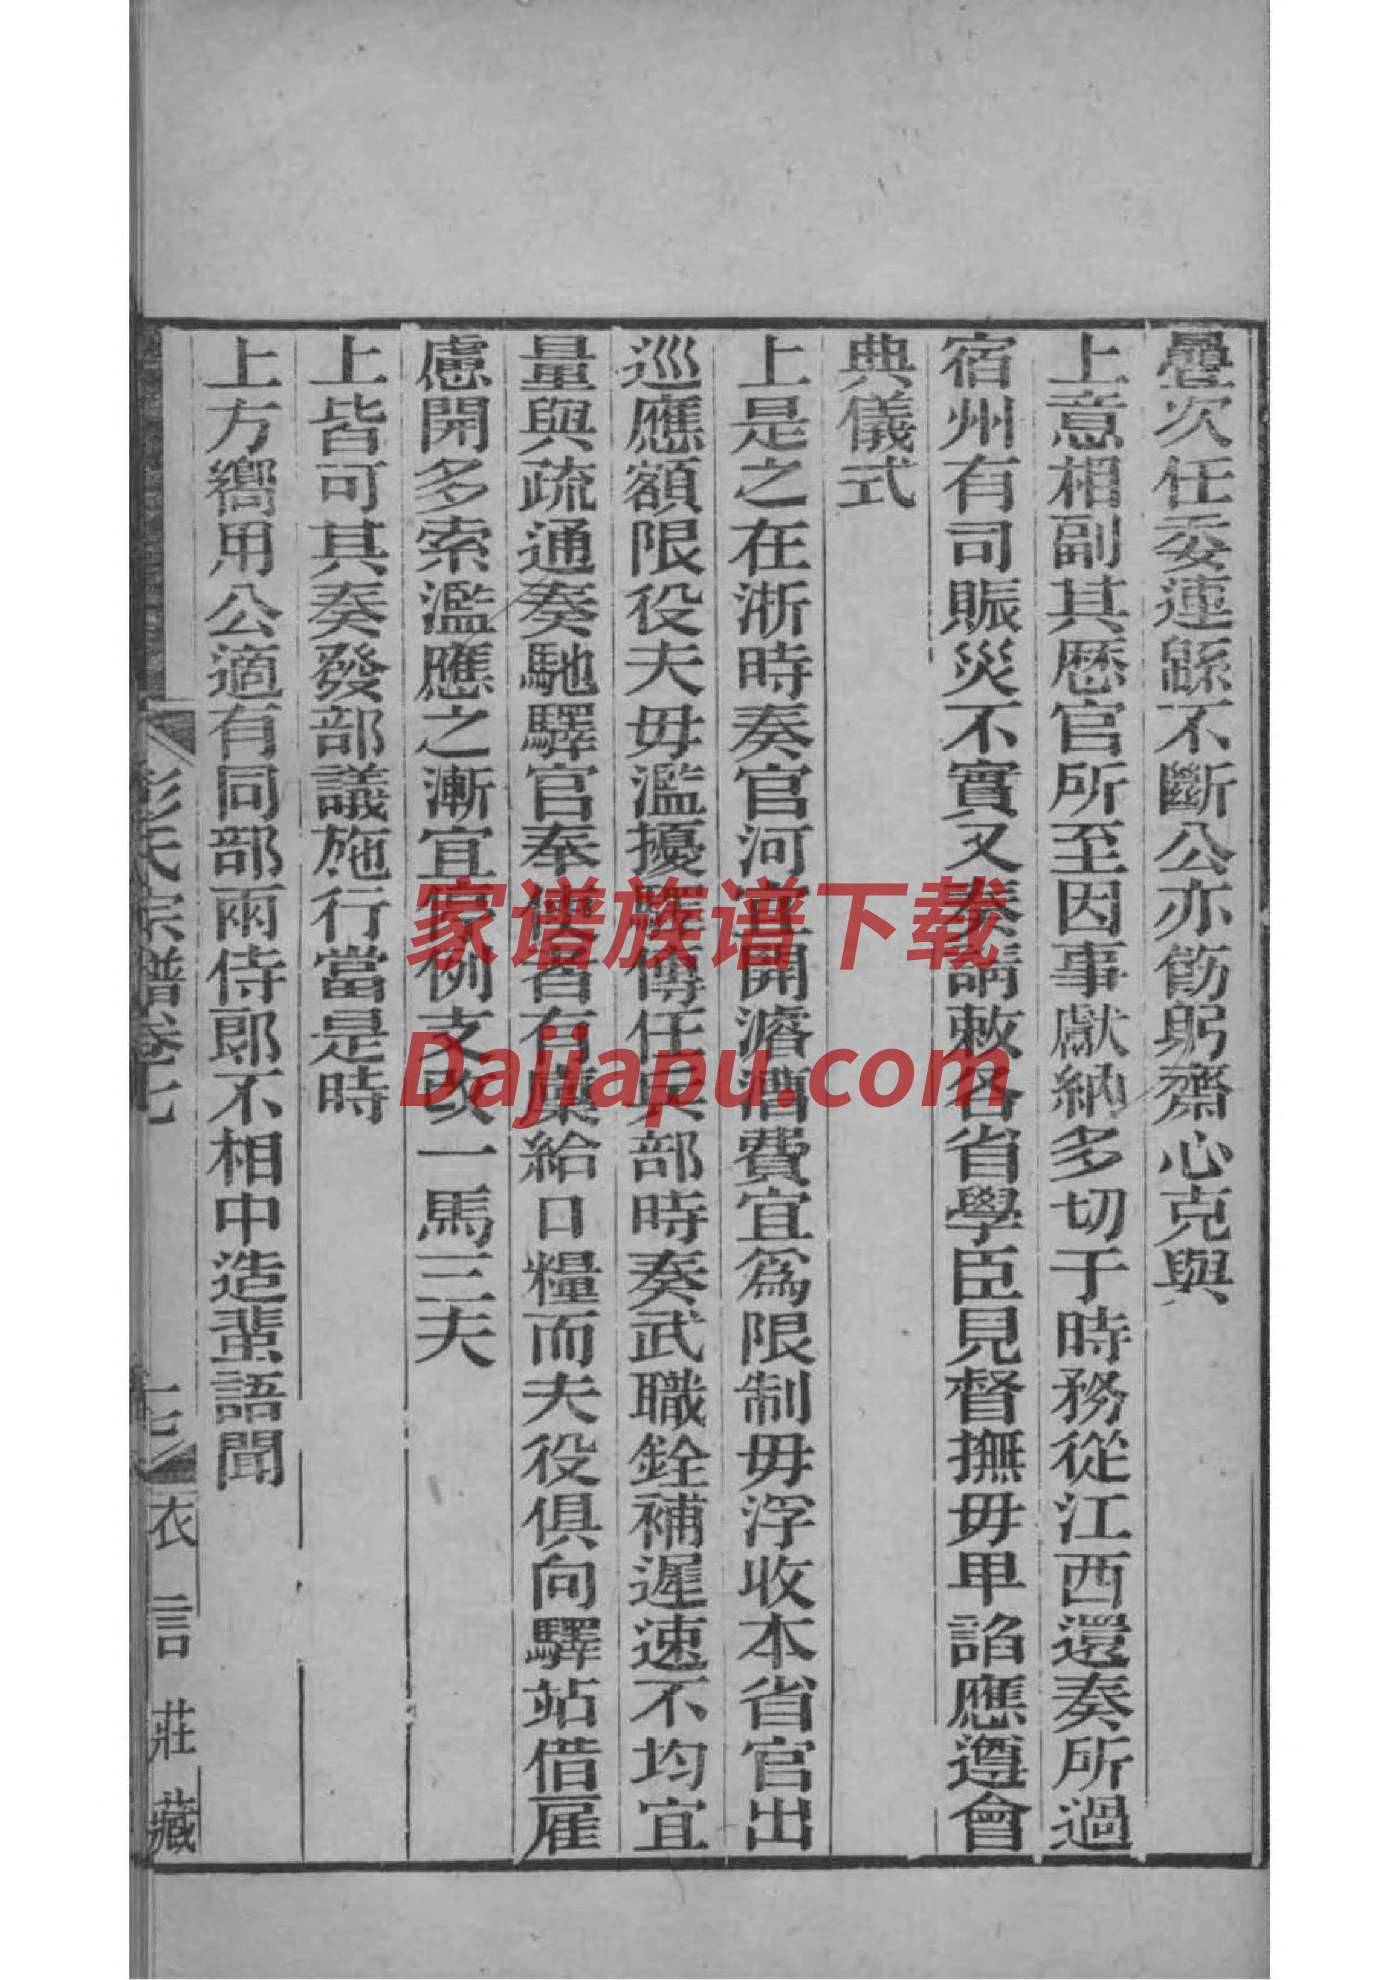 疊次任委連緜不斷公亦飭躬齋心克與
上意相副其歷官所至因事獻納多切于時務從江西還奏所過
宿州有司賑災不實又奏請敕各省學臣見督撫毋卑諂應遵會
典儀式
上是之在浙時奏官河宜開濬酒費宜爲限制毋浮收本省官出
巡應額限役夫毋濫擾驛傳任兵部時奏武職銓補遲速不均宜
量與疏通奏馳驛官奉使者有廩給口糧而夫役俱向驛站借雇
慮開多索濫應之漸宜寬例支改一馬三夫
上皆可其奏發部議施行當是時
上方嚮用公適有同部兩侍郎不相中造蜚語聞
彭氏宗譜卷七
十七
衣言莊藏
家谱族谱下载
Dajiapu.com